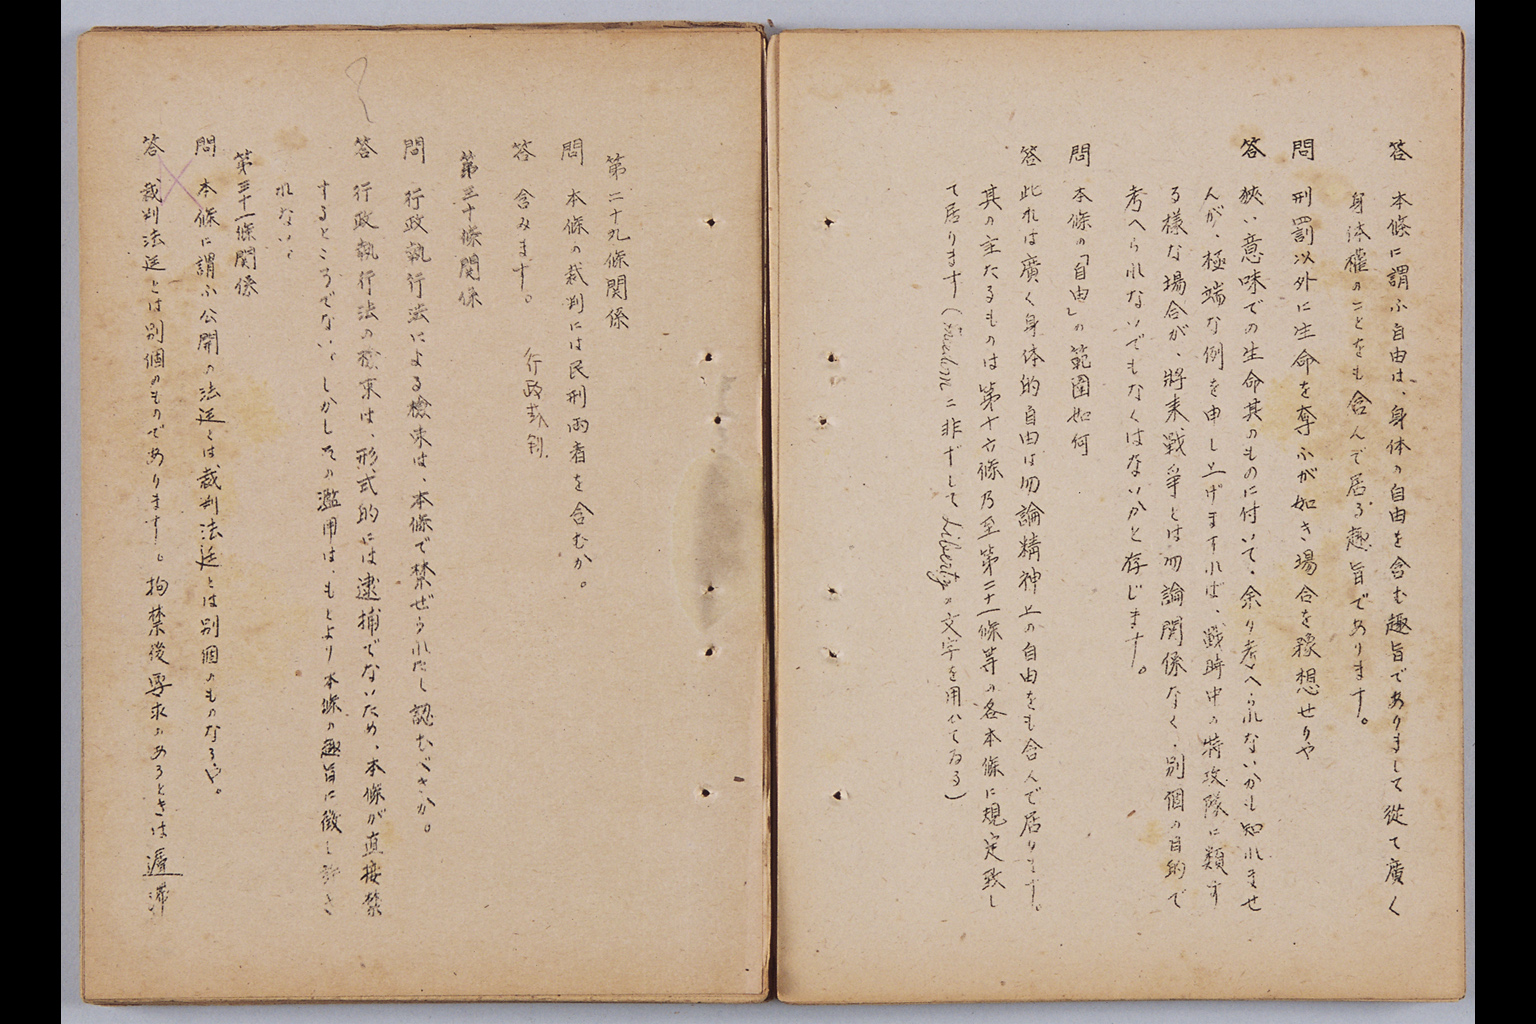 答 本條に謂ふ自由は、身体の自由を含む趣旨でありまして從て廣く
身体權のことをも含んで居る趣旨であります。
問 刑罰以外に生命を奪ふが如き場合を豫想せりや
答 狹い意味での生命其のものに付いて、余り考へられないかも知れませ
んが、極端な例を申し上げますれば、戰時中の特攻隊に類す
る樣な場合が、將来戰爭とは勿論関係なく、別個の目的で
考へられないでもなくはないかと存じます。
問 本條の「自由」の範囲如何
答 此れは廣く身体的自由は勿論精神上の自由をも含んで居ります。
其の主たるものは第十六條乃至第二十一條等の各本條に規定致し
て居ります(Freedomニ非ずしてLibertyの文字を用ひてゐる)
第二十九條関係
問 本條の裁判には民刑両者を含むか。
答 含みます。 行政裁判
第三十條関係
問 行政執行法による檢束は、本條で禁ぜられたと認むべきか。
答 行政執行法の檢束は、形式的には逮捕でないため、本條が直接禁
するところでない。しかしその濫用は、もとより本條の趣旨に徴し許さ
れない。
第三十一條関係
問 本條に謂ふ公開の法廷とは裁判法廷とは別個のものなるや。
答 裁判法廷とは別個のものであります。拘禁後要求のあるときは遅滞